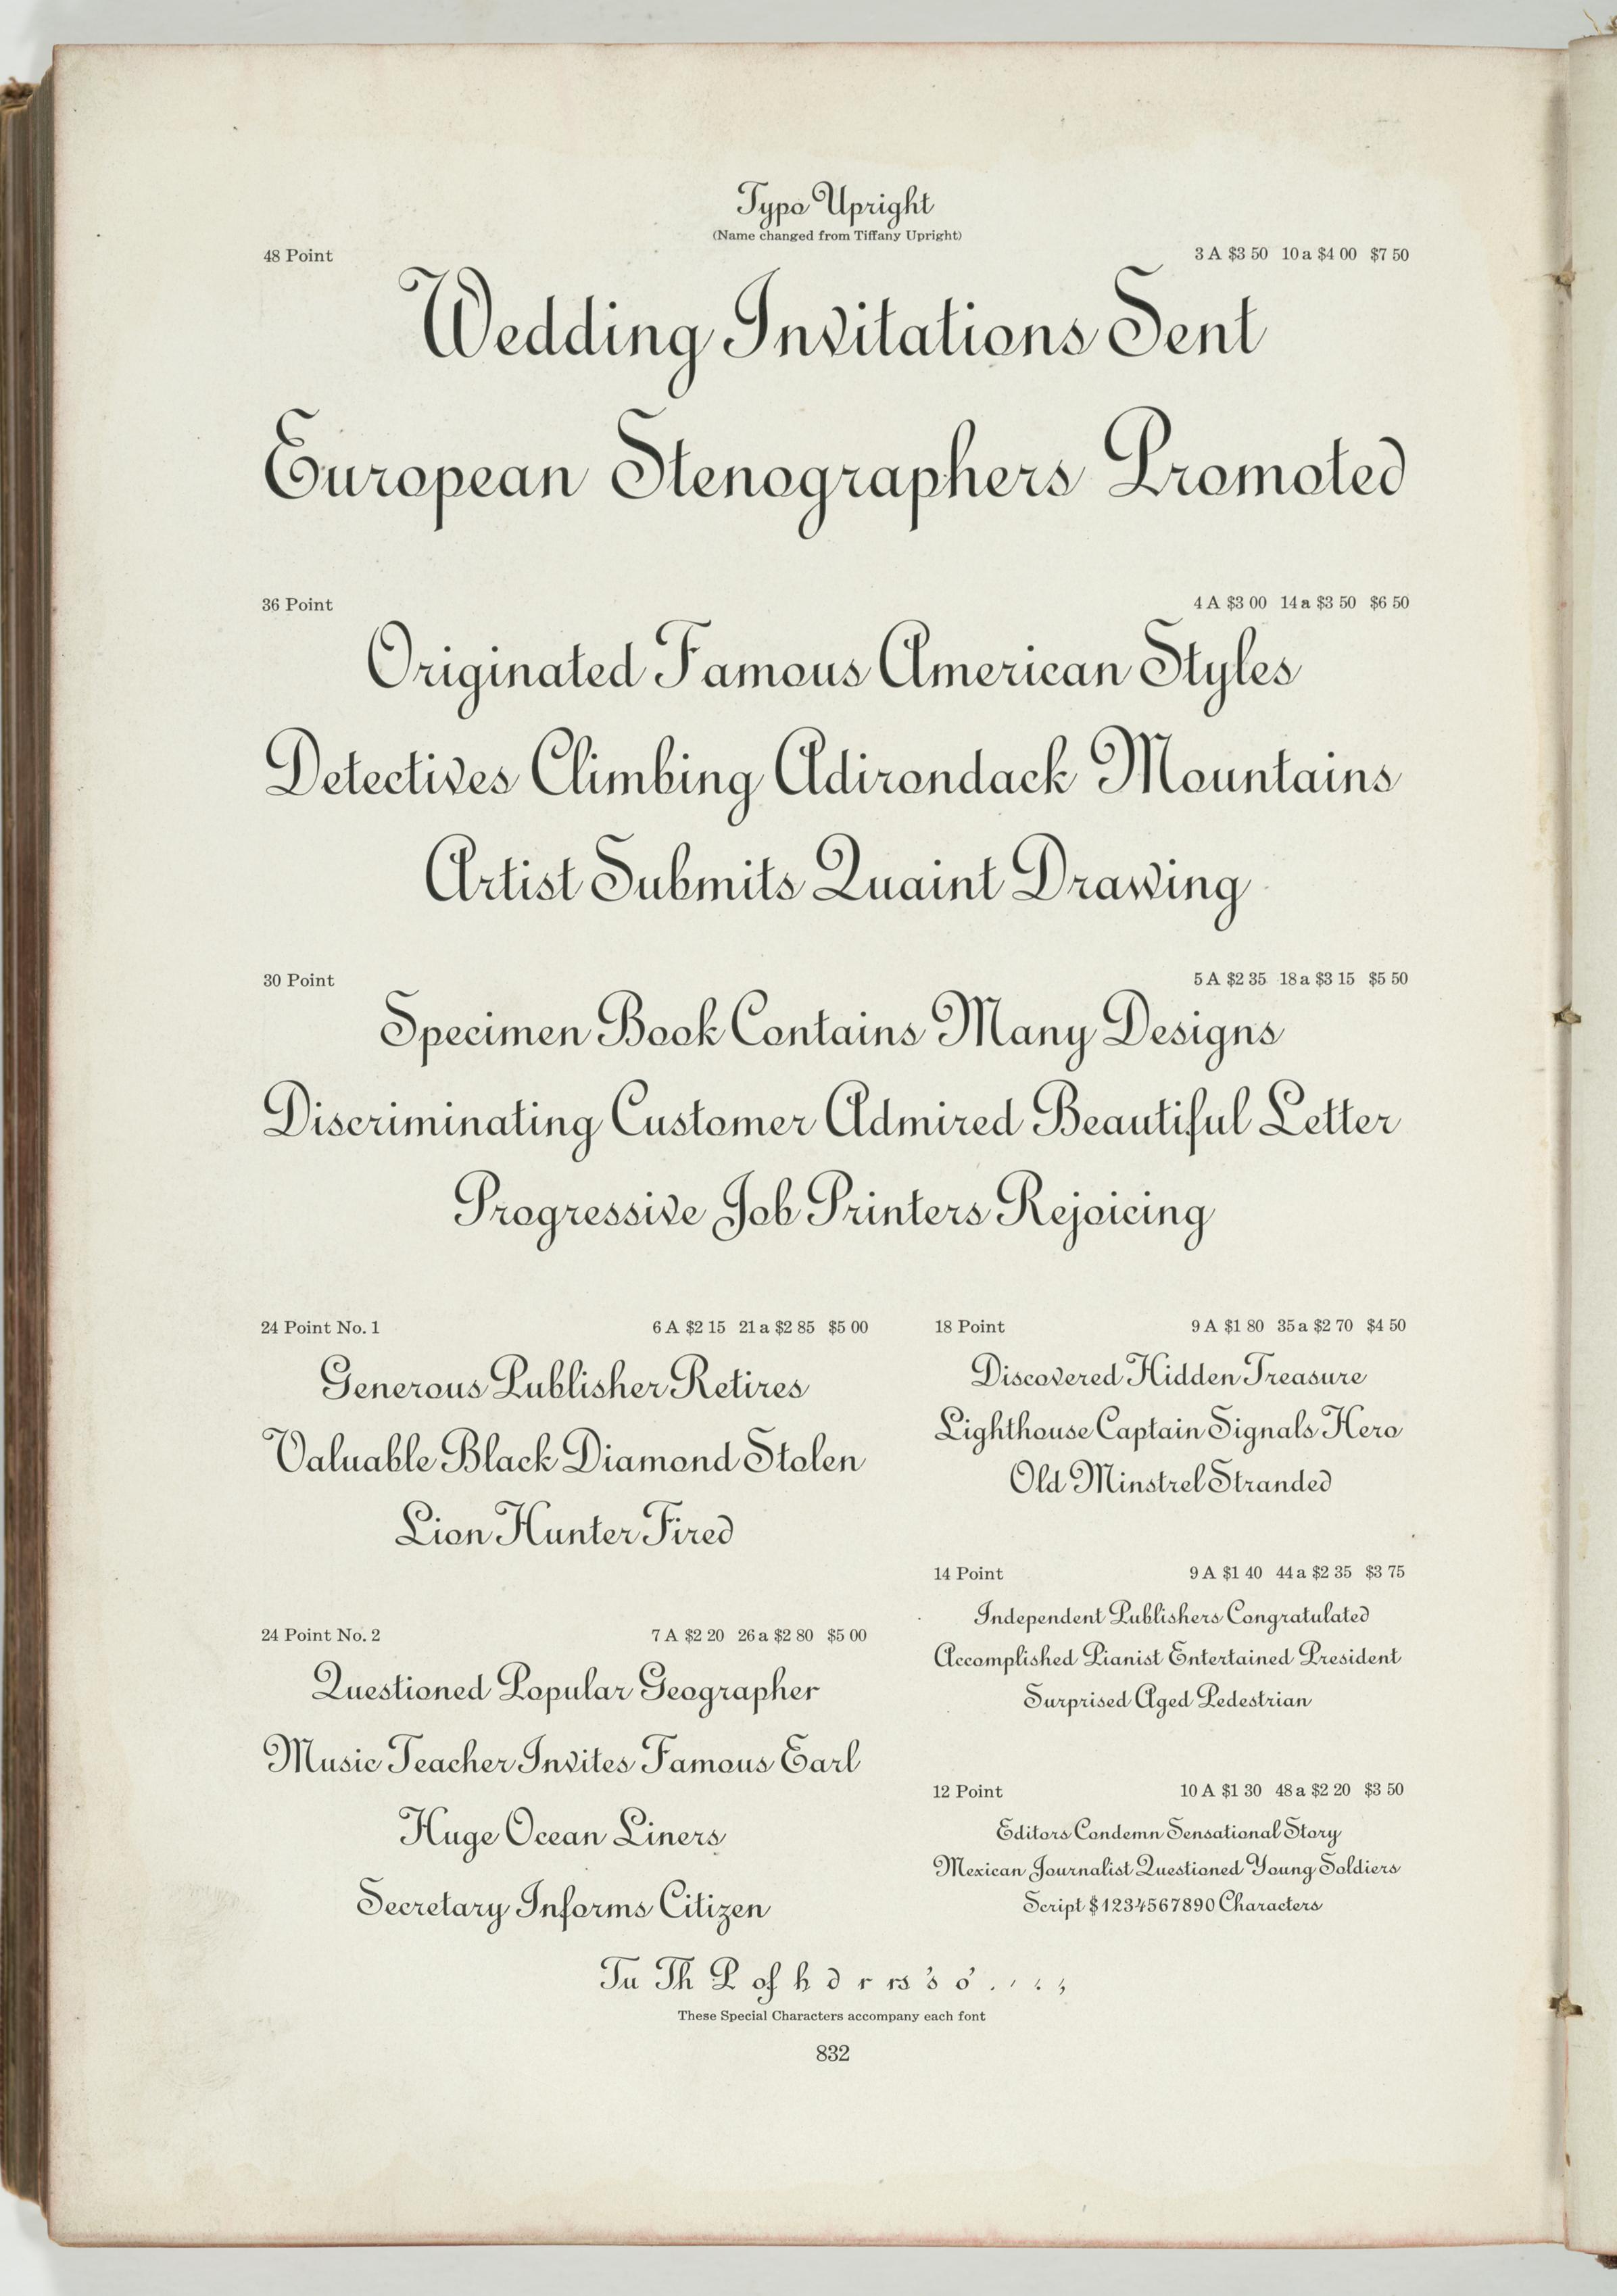 Typo Upright
(Name changed from Tiffany Upright)
48 Point 3 A $3 50 10 a $4 00 $7 50
Wedding Invitations Sent
European Stenographers Promoted
36 Point 4 A $3 00 14 a $3 50 $6 50
Originated Famous American Styles
Detectives Climbing Adirondack Mountains
Artist Submits Quaint Drawing
30 Point 5 A $2 35 18 a $3 15 $5 50
Specimen Book Contains Many Designs
Discriminating Customer Admired Beautiful Letter
Progressive Job Printers Rejoicing
24 Point No. 1 6 A $2 15 21 a $2 85 $5 00
Generous Publisher Retires
Valuable Black Diamond Stolen
Lion Hunter Fired
24 Point No. 2 7 A $2 20 26 a $2 80 $5 00
Questioned Popular Geographer
Music Teacher Invites Famous Earl
Huge Ocean Liners
Secretary Informs Citizen
18 Point 9 A $1 80 35 a $2 70 $4 50
Discovered Hidden Treasure
Lighthouse Captain Signals Hero
Old Minstrel Stranded
14 Point 9 A $1 40 44 a $2 35 $3 75
Independent Publishers Congratulated
Accomplished Pianist Entertained President
Surprised Aged Pedestrian
12 Point 10 A $1 30 48 a $2 20 $3 50
Editors Condemn Sensational Story
Mexican Journalist Questioned Young Soldiers
Script $1234567890 Characters
Tu Th P of h d r rs
These Special Characters accompany each font
832